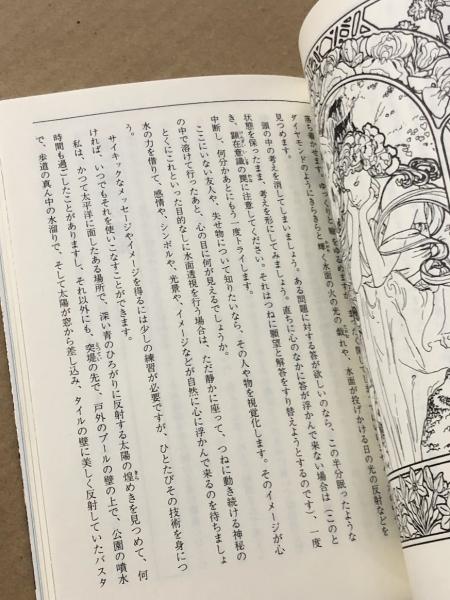 落ち着かせます。ゆっ
ダイヤモンドのようにきらきらと輝く水面の火の光の戯れや、水面が投げかける日の光の反射などを
見つめます。
頭の中の考えを消してしまいましょう。ある問題に対する答が欲しいのなら、この半分眠ったような
状態を保ったまま、考えを形にしてみましょう。直ちに心のなかに答が浮かんで来ない場合は（このと
き、顕在意識の罠に注意してください。それはつねに願望と解答をすり替えようとするのです）、一度
中断し、何分かあとにもう一度トライします。
ここにいない友人や、失せ物について知りたいなら、その人や物を視覚化します。そのイメージが心
の中で溶けて行ったあと、心の目に何が見えるでしょうか。
とくにこれといった目的なしに水面透視を行う場合は、ただ静かに座って、つねに動き続ける神秘の
水の力を借りて、感情や、シンボルや、光景や、イメージなどが自然に心に浮かんで来るのを待ちましょ
う。
サイキックなメッセージやイメージを得るには少しの練習が必要ですが、ひとたびその技術を身につ
ければ、いつでもそれを使いこなすことができます。
私は、かつて太平洋に面したある場所で、深い青のひろがりに反射する太陽の煌めきを見つめて、何
時間も過ごしたことがありますし、それ以外にも、突堤の先で、戸外のプールの壁の上で、公園の噴水
で、歩道の真ん中の水溜りで、そして太陽が窓から差し込み、タイルの壁に美しく反射していたバスタ